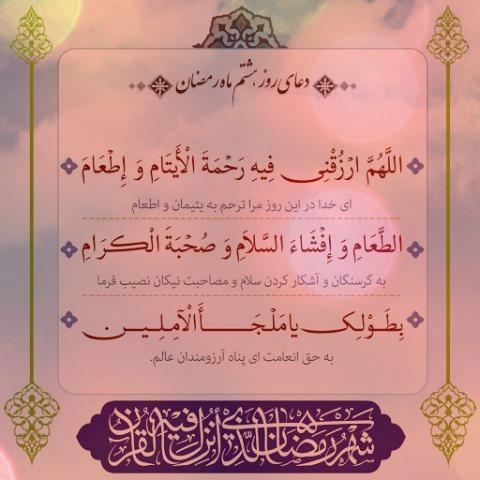 دعای روز هشتم ماه رمضان
اللَّهُمَّ ارْزُقْنِی فِیهِ رَحْمَةَ الْأَیْتَامِ وَ إِطْعَامَ
ای خدا در این روز مرا ترحم به یتیمان و اطعام
الطَّعَامِ وَ إِفْشَاءَ السَّلاَمِ وَ صُحْبَةَ الْکِرَامِ
به گرسنگان و آشکار کردن سلام و مصاحبت نیکان نصیب فرما
بِطَوْلِکَ یَا مَلْجَأَ الْآمِلِینَ
به حق انعامت ای پناه آرزومندان عالم.
شَهْرُ رَمَضَانَ الَّذِی أُنْزِلَ فِیهِ الْقُرْآنُ